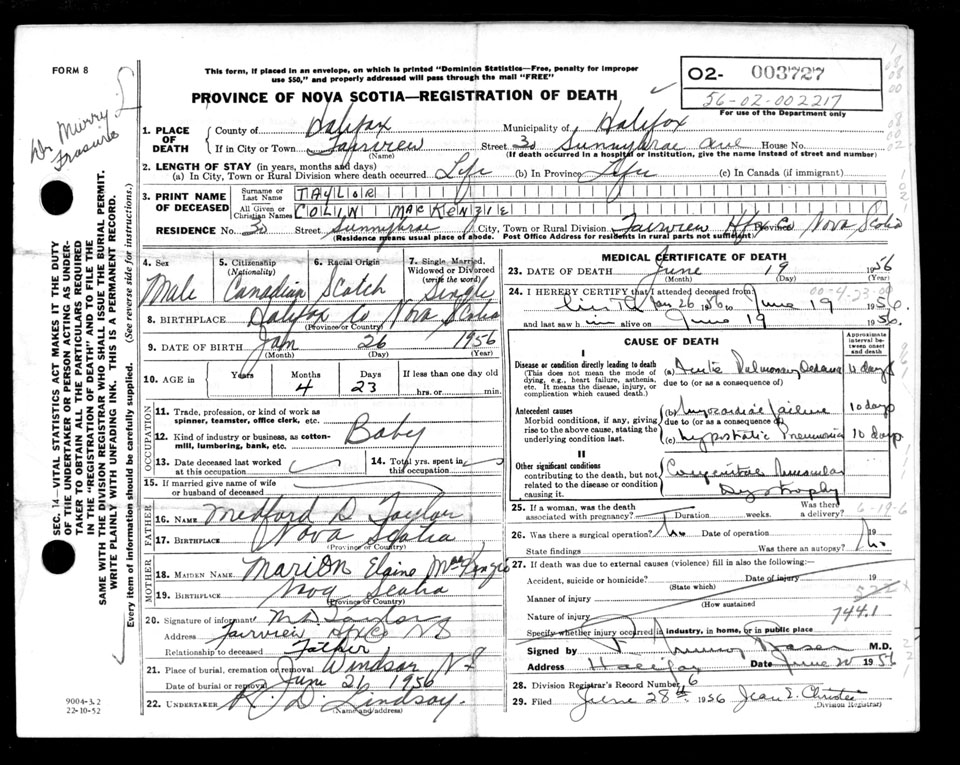 FORM 8
This form, if placed in an envelope, on which is printed "Dominion Statistics—Free, penalty for improper
use $50," and properly addressed will pass through the mail "FREE"
PROVINCE OF NOVA SCOTIA—REGISTRATION OF DEATH
O2- 003727
56-02-002217
For use of the Department only
Dr Murry
SEC. 14—VITAL STATISTICS ACT MAKES IT THE DUTY
OF THE UNDERTAKER OR PERSON ACTING AS UNDER-
TAKER TO OBTAIN ALL THE PARTICULARS REQUIRED
IN THE "REGISTRATION OF DEATH" AND TO FILE THE
SAME WITH THE DIVISION REGISTRAR WHO SHALL ISSUE THE BURIAL PERMIT.
WRITE PLAINLY WITH UNFADING INK. THIS IS A PERMANENT RECORD.
Every item of information should be carefully supplied. (See reverse side for instructions.)
1. PLACE OF DEATH { County of Halifax Municipality of Halifax
If in City or Town Fairview (Name) Street 30 Sunnybrae Ave House No.
(If death occurred in a hospital or institution, give the name instead of street and number)
2. LENGTH OF STAY (in years, months and days)
(a) In City, Town or Rural Division where death occurred Life (b) In Province Life (c) In Canada (if immigrant)
3. PRINT NAME OF DECEASED { Surname or Last Name TAYLOR
All Given or Christian Names COLIN MACKENZIE
RESIDENCE No. 30 Street Sunnybrae City, Town or Rural Division Fairview Hfx Co Province Nova Scotia
(Residence means usual place of abode. Post Office Address for residents in rural parts not sufficient)
4. Sex Male
5. Citizenship (Nationality) Canadian
6. Racial Origin Scotch
7. Single, Married, Widowed or Divorced (write the word) Single
8. BIRTHPLACE Halifax Co Nova Scotia
(Province or Country)
9. DATE OF BIRTH Jan 26 1956
(Month) (Day) (Year)
10. AGE in Years Months 4 Days 23 If less than one day old hrs. or min.
OCCUPATION
11. Trade, profession, or kind of work as spinner, teamster, office clerk, etc.
12. Kind of industry or business, as cotton-mill, lumbering, bank, etc. Baby
13. Date deceased last worked at this occupation
14. Total yrs. spent in this occupation
15. If married give name of wife or husband of deceased
FATHER
16. NAME Medford D Taylor
17. BIRTHPLACE Nova Scotia
(Province or Country)
MOTHER
18. MAIDEN NAME. Marion Elaine MacKenzie
19. BIRTHPLACE Nova Scotia
(Province or Country)
20. Signature of informant M D Taylor
Address Fairview Hfx Co N S
Relationship to deceased Father
21. Place of burial, cremation or removal Windsor, N S
Date of burial or removal June 21 1956
22. UNDERTAKER R D Lindsay.
(Name and address)
MEDICAL CERTIFICATE OF DEATH
23. DATE OF DEATH June 19 1956
(Month) (Day) (Year)
00-4-23-00
24. I HEREBY CERTIFY that I attended deceased from:
Jan 26 1956 to June 19 1956
and last saw him alive on June 19 1956.
CAUSE OF DEATH
Approximate interval between onset and death
I
Disease or condition directly leading to death
(This does not mean the mode of dying, e.g., heart failure, asthenia, etc. It means the disease, injury, or complication which caused death.)
(a) Acute Pulmonary Oedema 4 days
due to (or as a consequence of)
Antecedent causes
Morbid conditions, if any, giving rise to the above cause, stating the underlying condition last.
(b) Myocardial failure 10 days
due to (or as a consequence of)
(c) Hypostatic Pneumonia 10 days
II
Other significant conditions
contributing to the death, but not related to the disease or condition causing it.
Congenital Muscular
Dystrophy
25. If a woman, was the death associated with pregnancy? Duration weeks. Was there a delivery? 6-19-6
26. Was there a surgical operation? No Date of operation 19
State findings Was there an autopsy? No
27. If death was due to external causes (violence) fill in also the following:
Accident, suicide or homicide? (State which) Date of injury 19
Manner of injury (How sustained)
Nature of injury 744.1
Specify whether injury occurred in industry, in home, or in public place
Signed by Murray Fraser M.D.
Address Halifax Date June 20 1956
28. Division Registrar's Record Number 6
29. Filed June 28th 1956 Jean E. Christie
(Division Registrar)
9004-3.2
22-10-52